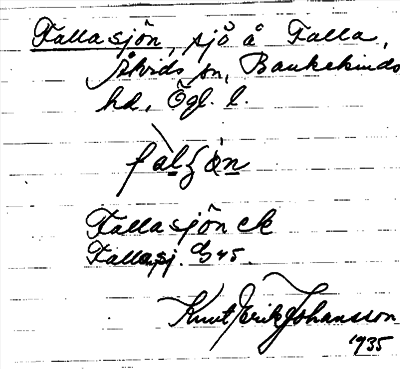 Fallasjön, sjö å Falla,
Åtvids sn, Bankekinds
hd, Ögl. l.
Fallasjön ek
Fallasj. GS45.
Knut Erik Johansson
1935